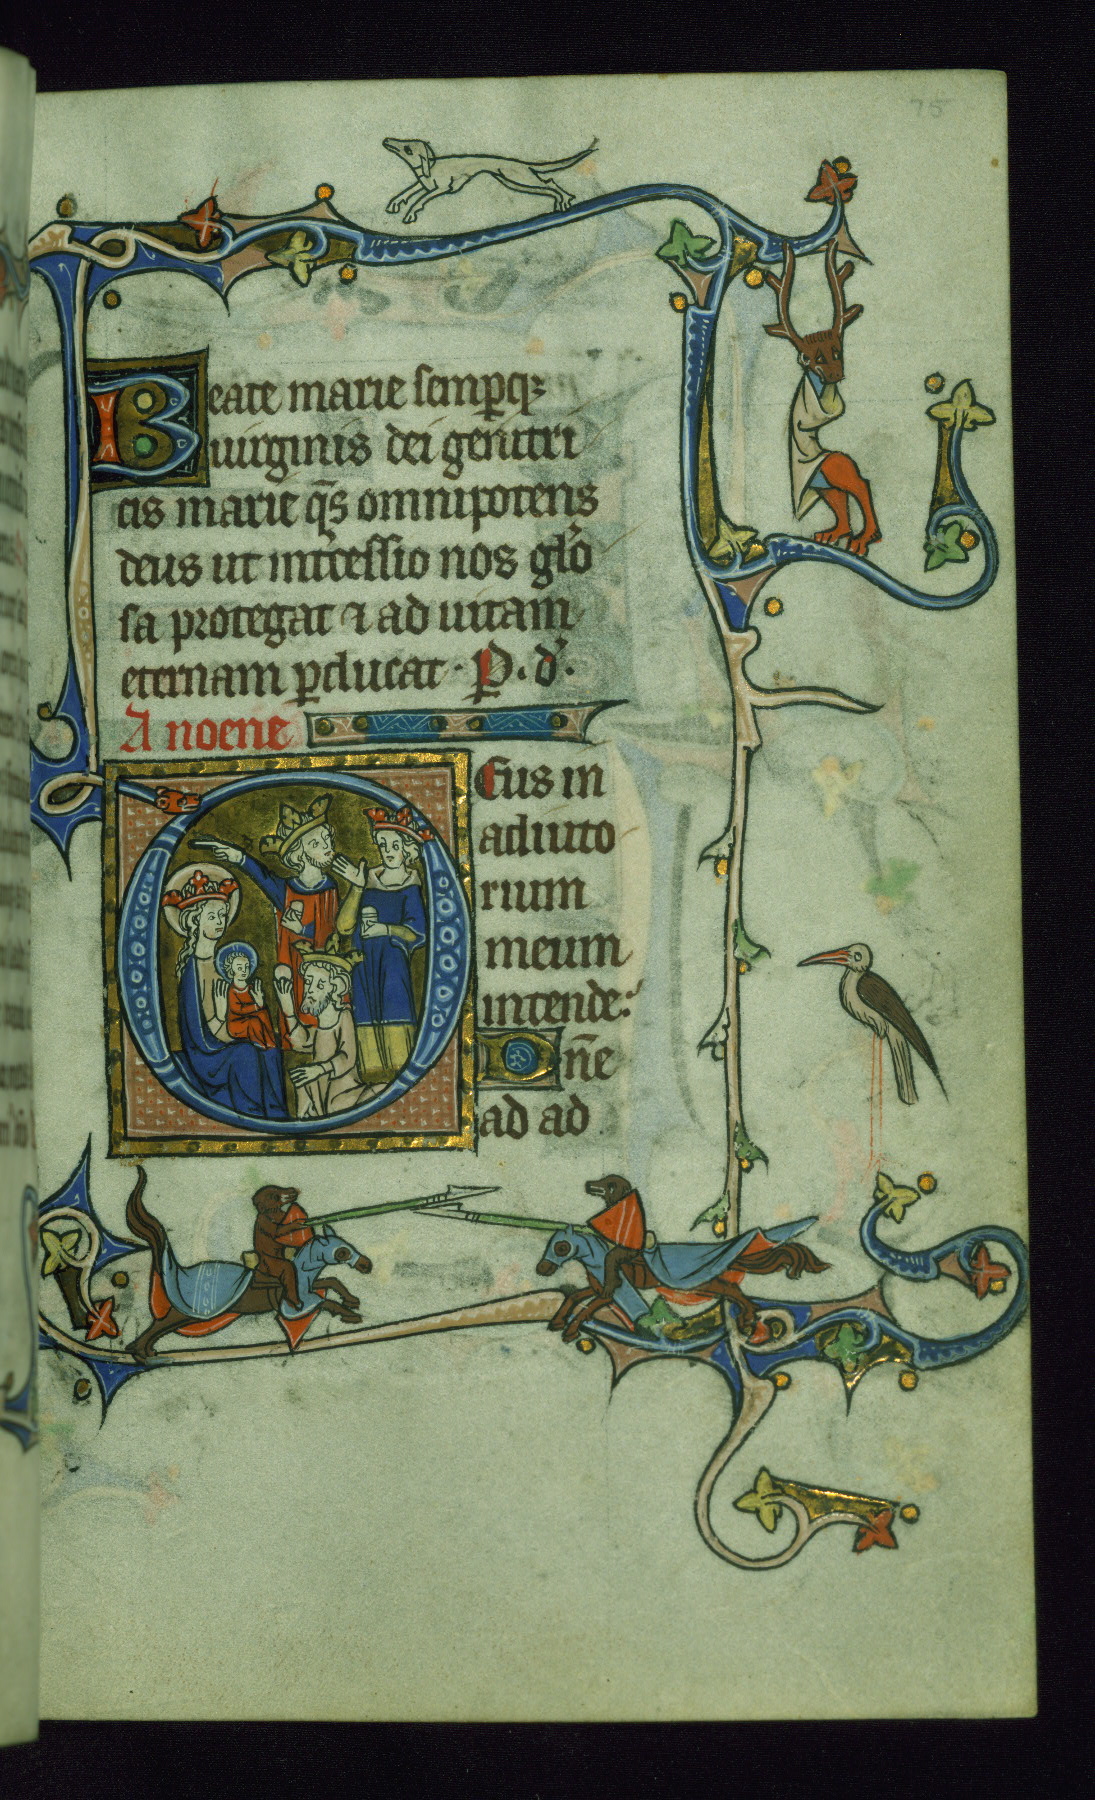 75
Beate marie semp̱q;
uirginis dei genitri
cis marie q̄s omnipotens
deus ut int̾cessio nos gl̾o
sa protegat ⁊ ad uitam
eternam ꝑducat · P . d̾.
A noene
Deus in
adiuto
rium
meum
intende:
n̄e
ad ad